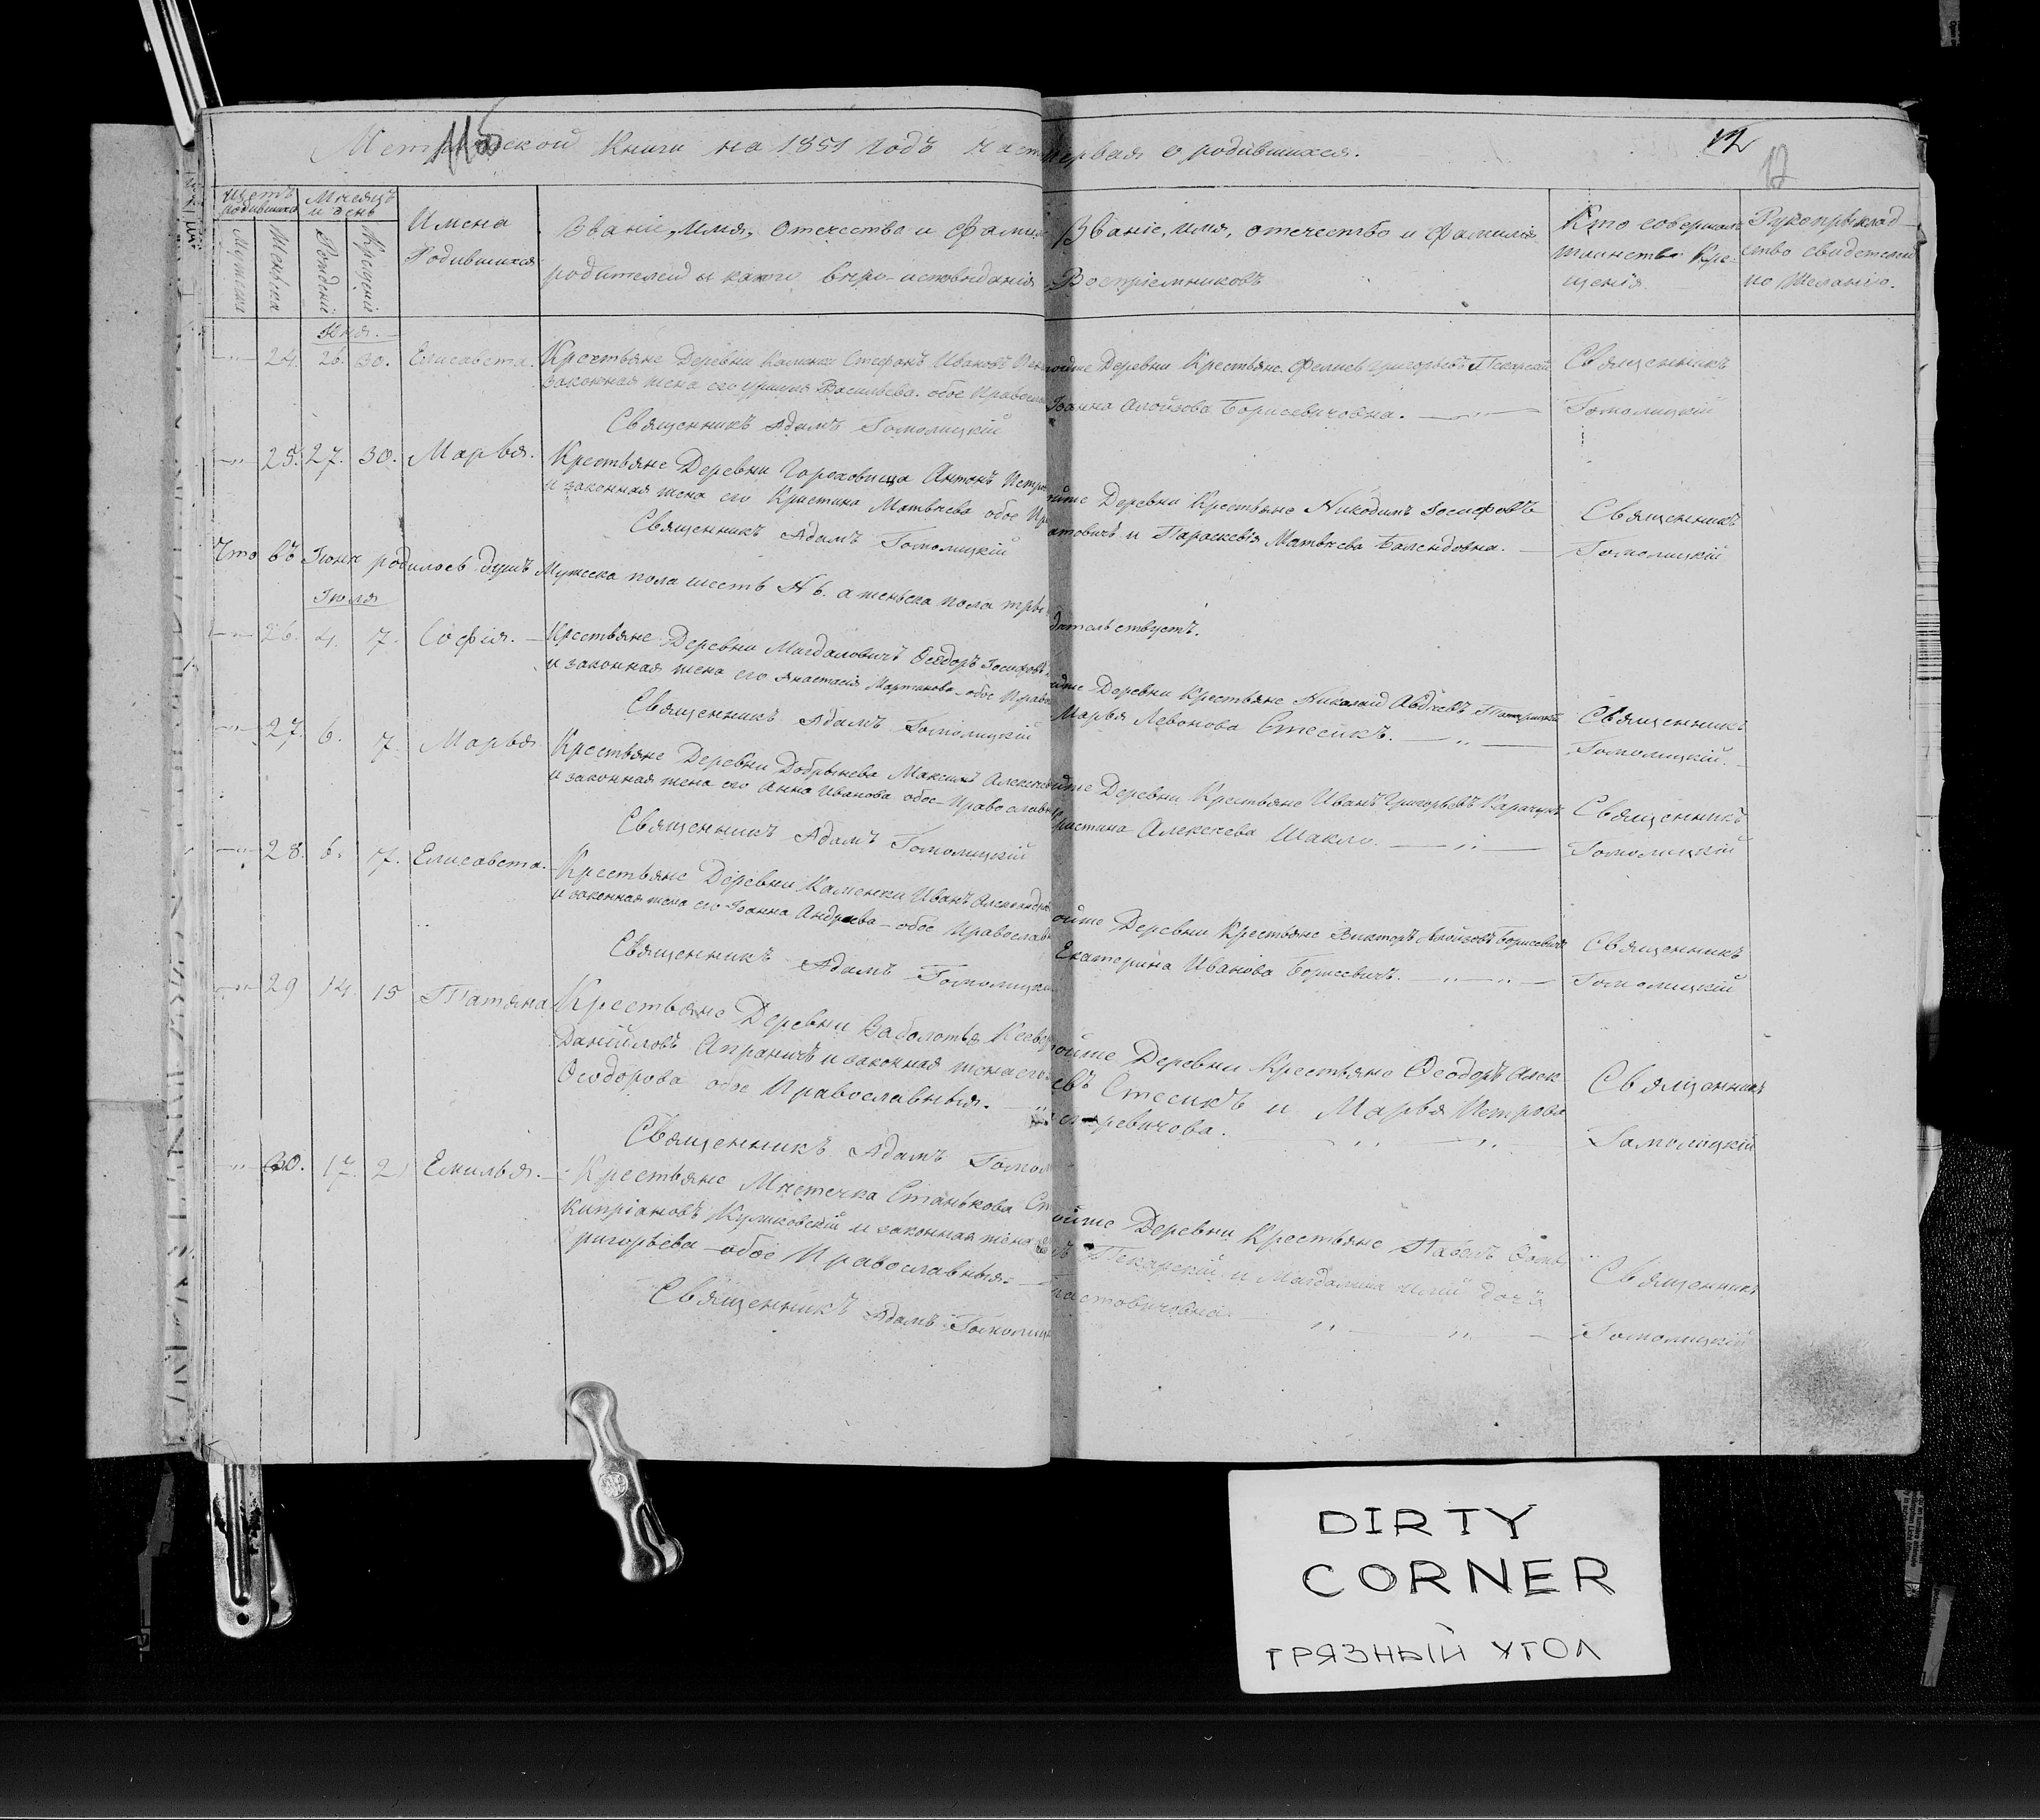 Метрической Книги на 1851 годъ част первая о родившихся.
12
12
Щетъ родившихся
Мѣсяцъ и день
Имена Родившихся
Званіе, Имя, Отечество и Фамил
родителей и какого вѣро-исповѣданія
Званіе, имя, отечество и фамилія
Востріемниковъ
Кто совершалъ таинство Крещенія
Рукоприкладство свидетелей по желанію.
Мужеска
Женска
Рожденія
Крещенія
24. 26. 30. Елисавета. Крестьяне Деревни Каменки Стефанъ Ивановъ
законная жена его Васильева. обое Правосл
Священникъ Адамъ Гомолицкій
Деревни Крестьяне Григорьевъ Пекарскій
Іоанна Алойзова Борисевичовна.
Священникъ
Гомолицкій
25. 27. 30. Марья. Крестьяне Деревни Гороховища Антонъ Петро
и законная жена его Кристина Матвѣева обое Пр
Священникъ Адамъ Гомолицкій
ойже Деревни Крестьяне Никодимъ Іосифовъ
атовичъ и Параскевія Матвѣева Балендовна.
Священникъ
Гомолицкій
Что въ Іюнѣ родилось душъ Мужска пола шесть № 6. а женьска пола три
дѣтельствуетъ.
Іюля
26. 4. 7. Софія. Крестьяне Деревни Магдаловичъ Ѳеодоръ Іосифовъ
и законная жена его Анастасія Мартинова обое Право
Священникъ Адамъ Гомолицкій
Деревни Крестьяне Николай Авдѣевъ
Марья Левонова Стесикъ.
Священникъ
Гомолицкій.
27. 6. 7. Марья Крестьяне Деревни Добрынева Максимъ Алексѣев
и законная жена его Анна Иванова обое Православны
Священникъ Адамъ Гомолицкій
Деревни Крестьяне Иванъ Григорьевъ Карачунъ
ристина Алексѣева Шакло.
Священникъ
Гомолицкій
28. 6. 7. Елисавета. Крестьяне Деревни Каменки Иванъ Александро
и законная жена его Іоанна Андреева обое Православ
Священникъ Адамъ Гомолицкі
ойже Деревни Крестьяне Викторъ Алойзовъ Борисевичъ
Екатерина Иванова Борисевичъ.
Священникъ
Гомолицкій
29 14. 15 Татяна Крестьяне Деревни Заболотья
Данійловъ Апраничъ и законная жена его
Ѳеодорова обое Православныя.
Священникъ Адамъ Гомол
ойже Деревни Крестьяне Ѳеодоръ Алек
евъ Стесикъ и Марья Петрова
ревичова.
Священникъ
Гомолицкій
30. 17. 21 Емилья. Крестьяне Мѣстечка Станькова Ст
Кипріановъ Куликовскій и законная жена
Григорьева обое Православныя.
Священникъ Адамъ Гомолиц
ойже Деревни Крестьяне Павелъ
Пекарскій и Магдалина Иліи дочь
Священникъ
Гомолицкій
DIRTY
CORNER
ГРЯЗНЫЙ УГОЛ